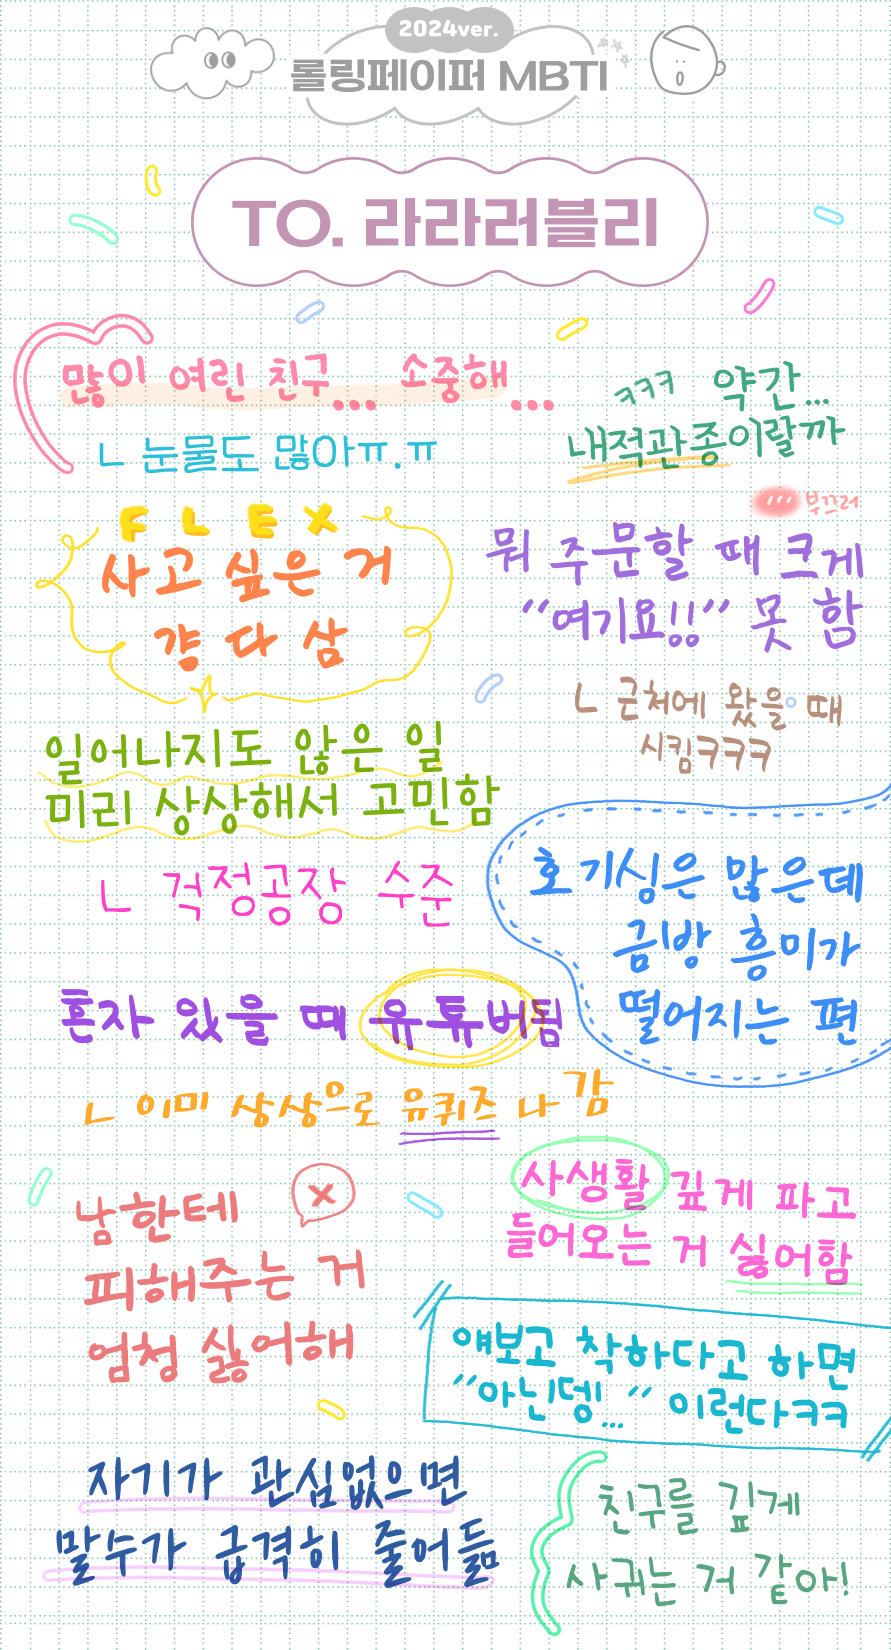 2024ver.
롤링페이퍼 MBTI
TO. 라라러블리
많이 여린 친구... 소중해...
ㄴ 눈물도 많아ㅠ.ㅠ
ㅋㅋㅋ 약간...
내적관종이랄까
부끄러
FLEX
사고 싶은 거
걍 다 삼
뭐 주문할 때 크게
“여기요!!” 못 함
ㄴ 근처에 왔을 때
시킴ㅋㅋㅋ
일어나지도 않은 일
미리 상상해서 고민함
ㄴ 걱정공장 수준
호기심은 많은데
금방 흥미가
떨어지는 편
혼자 있을 때 유튜버됨
ㄴ 이미 상상으로 유퀴즈 나감
남한테
피해주는 거
엄청 싫어해
사생활 깊게 파고
들어오는 거 싫어함
얘보고 착하다고 하면
“아닌뎅!...” 이런다ㅋㅋ
자기가 관심없으면
말수가 급격히 줄어듦
친구를 깊게
사귀는 거 같아!